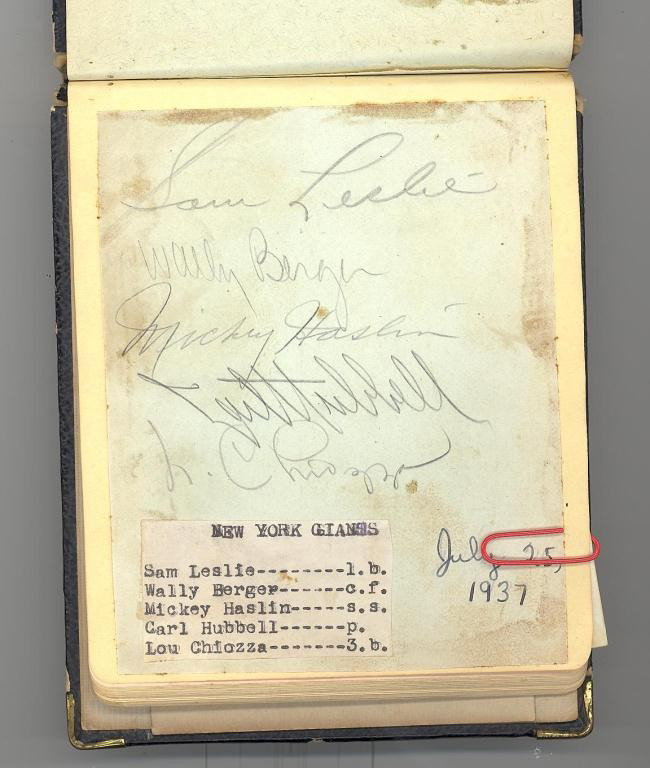 Sam Leslie
Wally Berger
Mickey Haslin
Carl Hubbell
L. Chiozza
NEW YORK GIANTS
Sam Leslie--------1.b.
Wally Berger------c.f.
Mickey Haslin-----s.s.
Carl Hubbell------p.
Lou Chiozza-------3.b.
July 25,
1937